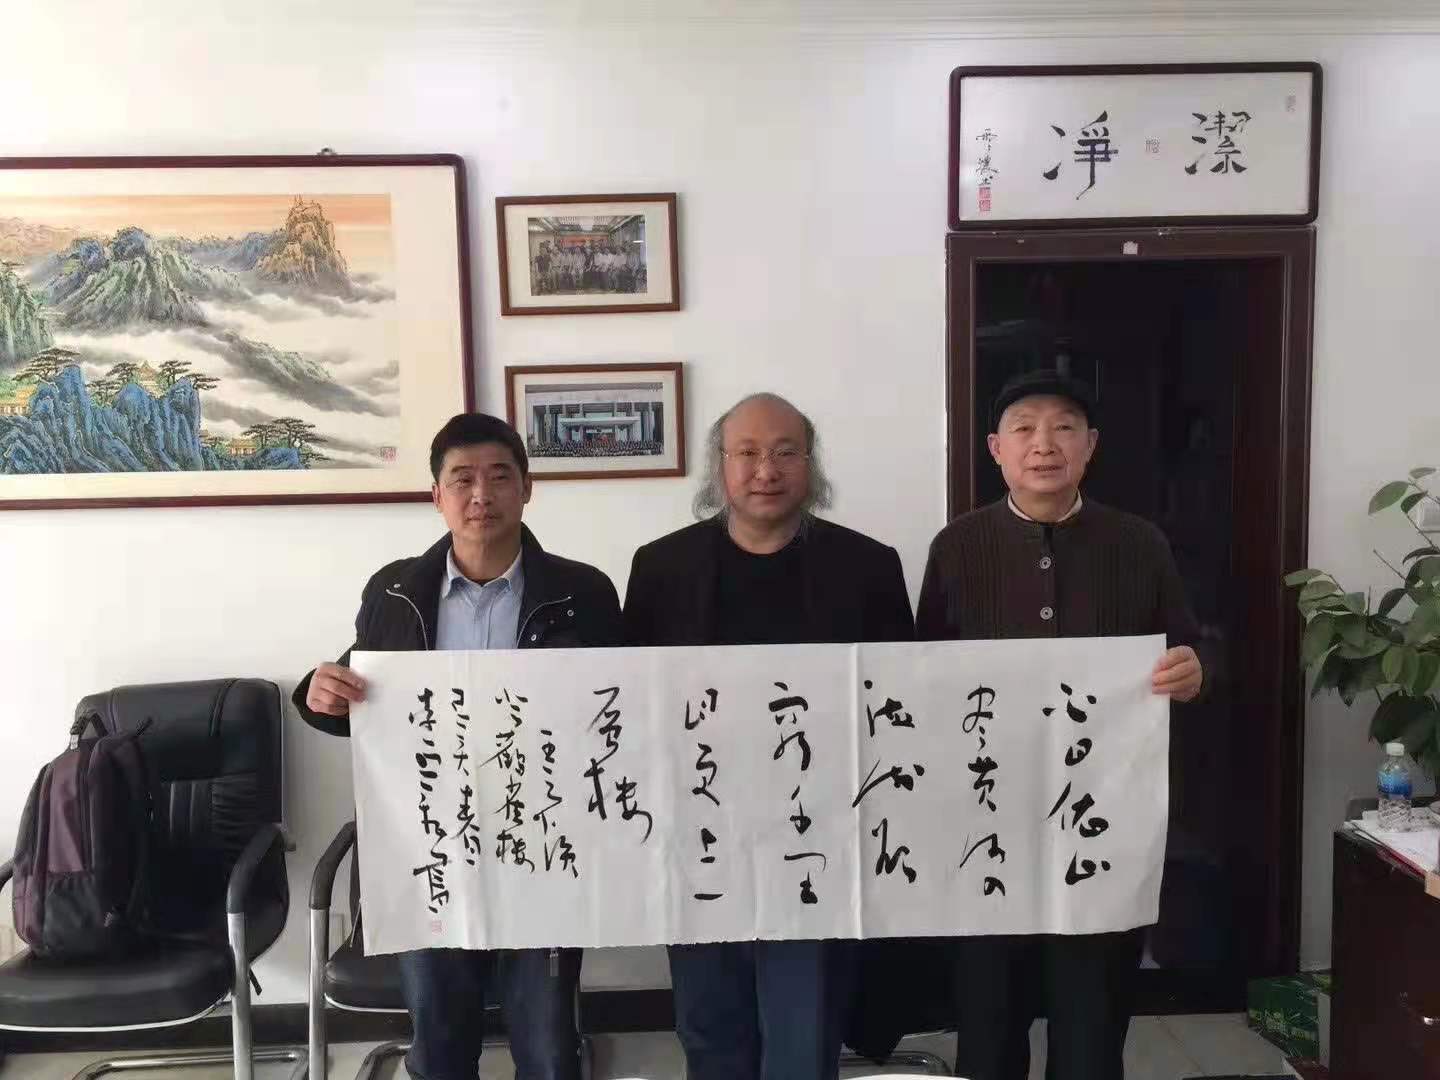 潔凈
白日依山
尽黄河入
海流欲
穷千里
目更上一
层楼
王之涣
登鹳雀楼
己亥春日